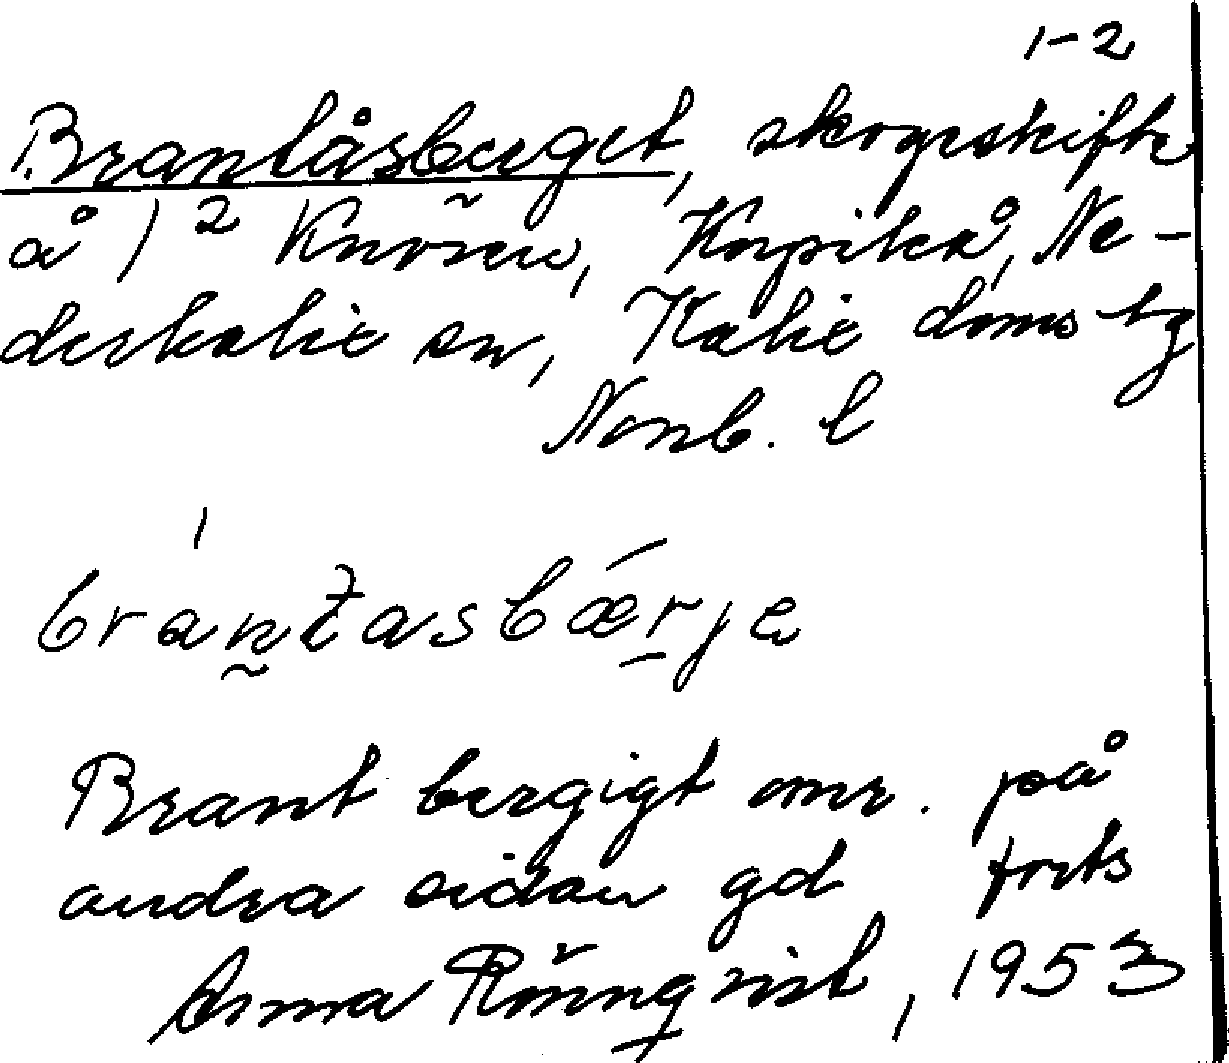 1-2
Brantåsberget, skogsskifte
å 1² Knösen, Korpikå, Ne-
derkalix sn, Kalix doms tg
Norrb. l
brantasbærje
Brant bergigt omr. på
andra sidan gd forts
Anna Rönnqvist, 1953